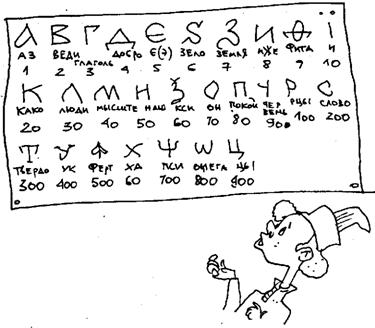 А В Г Д Є Ѕ З И Ѳ І
АЗ ВЕДИ ГЛАГОЛЬ ДОБРО Є(Э) ЗЕЛО ЗЕМЛЯ ИЖЕ ФИТА И
1 2 3 4 5 6 7 8 9 10
К Л М Н Ѯ О П Ч Р С
КАКО ЛЮДИ МЫСЛИТЕ НАШ КСИ ОН ПОКОЙ ЧЕРВЕЛЬ РЦЫ СЛОВО
20 30 40 50 60 70 80 90 100 200
Т У Ф Х Ѱ Ѡ Ц
ТВЕРДО УК ФЕРТ ХА ПСИ ОМЕГА ЦЫ
300 400 500 60 700 800 900